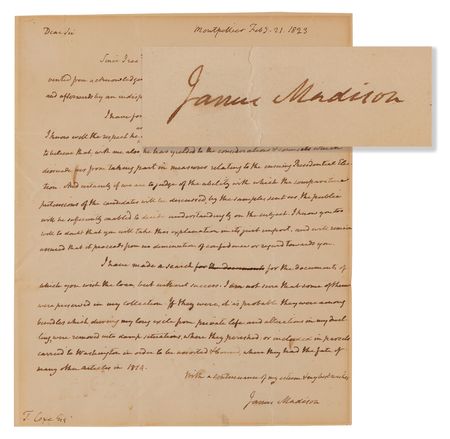 Dear Sir
Montpellier Feby. 21 1823
Since I rec
vented from acknowledging
and afterwards by an indisp
I have for
I know well the respect he
James Madison
to believe that, with me also he has yielded to the considerations & counsels which
dissuade us from taking part in measures relating to the ensuing Presidential Elec
tion And certainly if we are to judge of the ability with which the comparative
pretensions of the candidates will be discussed, by the samples sent us the public
will be sufficiently enabled to decide understandingly on the subject. I know you too
well to doubt that you will take this explanation in its just import, and will remain
assured that it proceeds from no diminution of confidence or regard towards you.
I have made a search for the documents for the documents of
which you wish the loan, but without success. I am not sure that some of them
were preserved in my collection. If they were, it is probable they were among
bundles which during my long exile from private life and alterations in my dwel
ling were removed into damp situations, where they perished, or inclosed in parcels
carried to Washington in order to be assorted & bound, where they had the fate of
many other articles in 1814.
With a continuance of my esteem & my best wishes
James Madison
T. Coxe Esqr